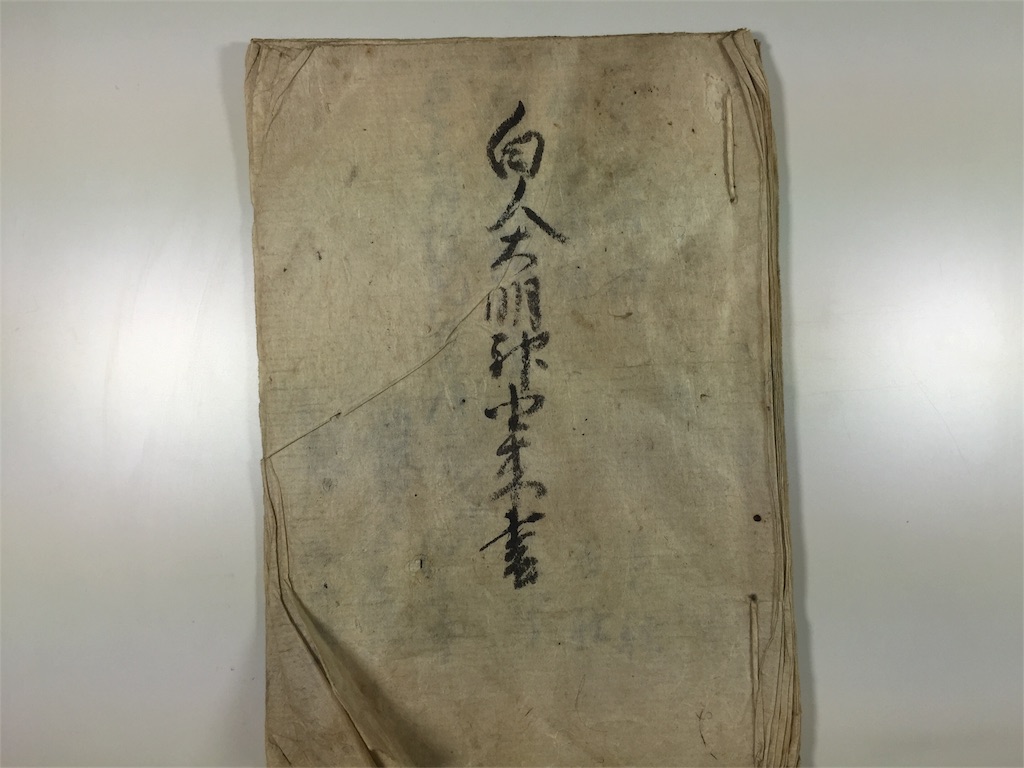 白人大明神由来書